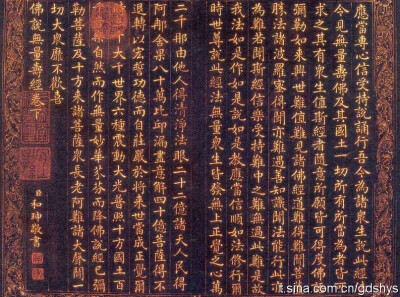 應當專心信受持說誦行吾今為諸衆生說此經
令見無量壽佛及其國土一切所有所當為者皆
求之其有衆生值斯經者隨意所願皆可得度佛
彌勒如來興世難值難見諸佛經道難得難聞菩
勝法諸波羅蜜得聞亦難遇善知識聞法能行此
為難若聞斯經信樂受持難中之難無過此難是故
我法如是作如是說如是教應當信順如法修行爾
時世尊說此經法無量衆生皆發無上正覺之心萬
二千那由他人得清淨法眼二十二億諸天人民得
阿那含果八十萬比丘漏盡意解四十億菩薩得不
退轉以弘誓功德而自莊嚴於將來世當成正覺爾
時三千大千世界六種震動大光普照十方國土百
音樂自然而作無量妙華芬芬而降佛說經已彌
勒菩薩及十方來諸菩薩衆長老阿難諸大聲聞一
切大衆靡不歡喜
佛說無量壽經卷下
臣和珅敬書
t.sina.com.cn/gdshys